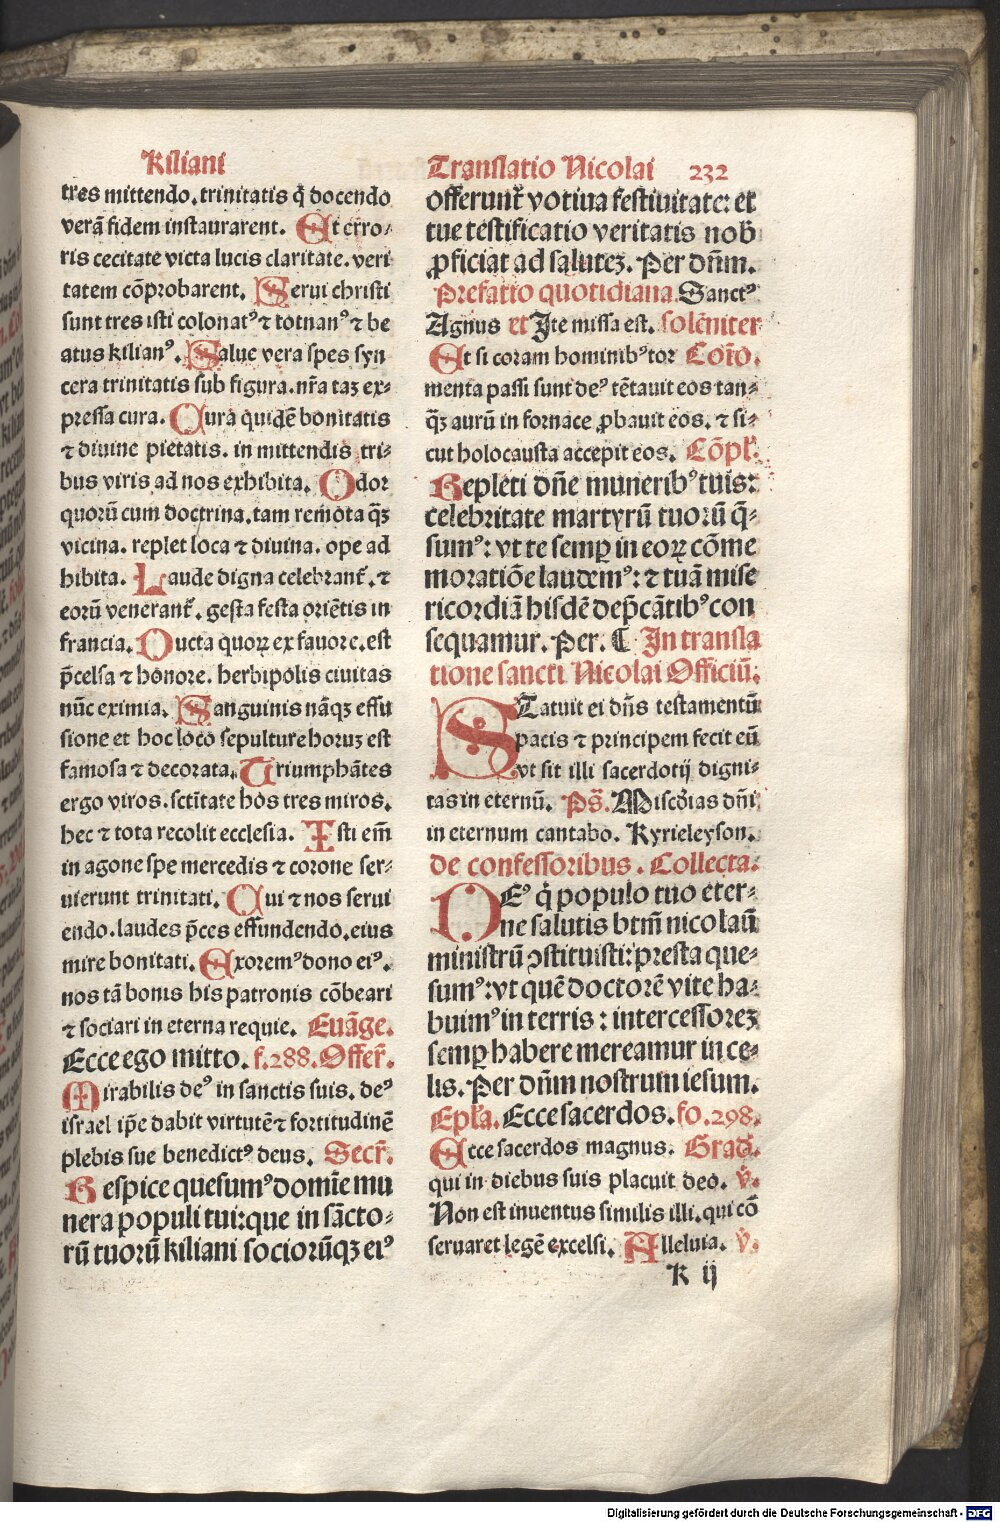 Kiliani
tres mittendo.trinitatis q̄ docendo
verā fidem instaurarent. Et erro⸗
ris cecitate victa lucis claritate.veri
tatem cōprobarent. Serui christi
sunt tres isti colonatꝰ ⁊ totnanꝰ ⁊ be
atus kilianꝰ. Salue vera spes syn
cera trinitatis sub figura.nr̄a taꝫ ex⸗
pressa cura. Cura quidē bonitatis
⁊ diuine pietatis. in mittendis tri⸗
bus viris ad nos exhibita. Odor
quorū cum doctrina.tam remota qꝫ
vicina. replet loca ⁊ diuina. ope ad
hibita. Laude digna celebrant᷑. ⁊
eorū venerant᷑. gesta festa oriētis in
francia. Ducta quoꝝ ex fauore.est
p̄celsa ⁊ honore. herbipolis ciuitas
nūc eximia. Sanguinis nāqꝫ effu
sione et hoc loco sepulture horuꝫ est
famosa ⁊ decorata. Triumphātes
ergo viros.sctītate hos tres miros.
hec ⁊ tota recolit ecclesia. Isti em̄
in agone spe mercedis ⁊ corone ser⸗
uierunt trinitati. Qui ⁊ nos serui
endo.laudes p̄ces effundendo.eius
mire bonitati. Exoremꝰ dono eiꝰ.
nos tā bonis his patronis cōbeari
⁊ sociari in eterna requie. Euāge.
Ecce ego mitto. f.288. Offer̄.
Mirabilis deꝰ in sanctis suis. deꝰ
israel ip̄e dabit virtutē ⁊ fortitudinē
plebis sue benedictꝰ deus. Secr̄.
Respice quesumꝰ domīe mu
nera populi tui:que in sācto⸗
rū tuorū kiliani sociorūqꝫ eiꝰ
Translatio Nicolai 232
offerunt᷑ votiua festiuitate: et
tue testificatio veritatis nob̄
ꝓficiat ad saluteꝫ. Per dn̄m.
Prefatio quotidiana Sanctꝰ
Agnus et Ite missa est. solēniter
Et si coram hominibꝰ tor Cōīo.
menta passi sunt deꝰ tētauit eos tan⸗
qꝫ aurū in fornace ꝓbauit eos. ⁊ si⸗
cut holocausta accepit eos. Cōpl᷑.
Repleti dn̄e muneribꝰ tuis:
celebritate martyrū tuorū q̄⸗
sumꝰ: vt te semꝑ in eoꝝ cōme
moratiōe laudemꝰ: ⁊ tuā mise
ricordiā hisdē dep̄cātibꝰ con
sequamur. Per. ¶ In transla
tione sancti Nicolai Officiū.
Statuit ei dn̄s testamentū
pacis ⁊ principem fecit eū
vt sit illi sacerdotij digni⸗
tas in eternū. Ps̄. Miscd̄ias dn̄i
in eternum cantabo. Kyrieleyson.
de confessoribus. Collecta.
DEꝰ q̇ populo tuo eter⸗
ne salutis btm̄ nicolaū
ministrū ꝯstituisti:presta que⸗
sumꝰ:vt quē doctorē vite ha⸗
buimꝰ in terris : intercessoreꝫ
semꝑ habere mereamur in ce⸗
lis. Per dn̄m nostrum iesum.
Epl᷑a. Ecce sacerdos. fo.298.
Ecce sacerdos magnus. Grad᷑.
qui in diebus suis placuit deo. v̄.
Non est inuentus similis illi.qui cō
seruaret legē excelsi. Alleluia. v̄.
K ij
Digitalisierung gefördert durch die Deutsche Forschungsgemeinschaft - DFG